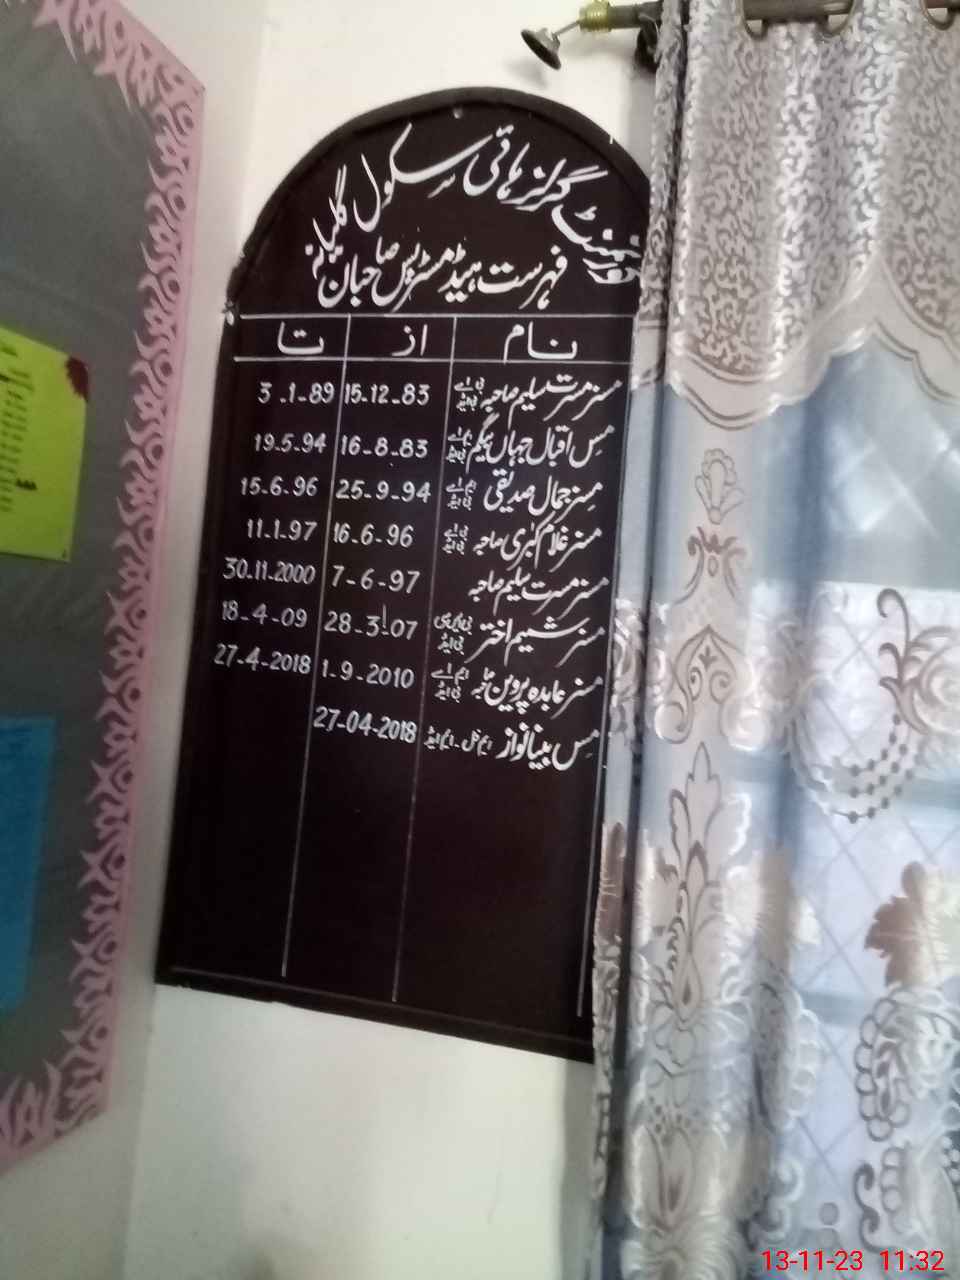 گورنمنٹ گرلز ہائی سکول گلیانہ
فہرست ہیڈ مسٹریس صاحبان
نام از تا
مسز مسرت سلیم صاحبہ بی اے بی ایڈ 15-12-83 3-1-89
مس اقبال جہاں بیگم ایم اے بی ایڈ 16-8-83 19.5-94
مسز جمال صدیقی ایم اے بی ایڈ 25-9-94 15-6-96
مسز غلام کبریٰ صاحبہ بی اے بی ایڈ 16-6-96 11.1.97
مسز مسرت سلیم صاحبہ 7-6-97 30.11.2000
مسز شمیم اختر بی ایڈ 28-3-07 18-4-09
مسز عابدہ پروین صاحبہ ایم اے بی ایڈ 1-9-2010 27-4-2018
مس بینا نواز ایم فل - ایم ایڈ 27-04-2018
13-11-23 11:32